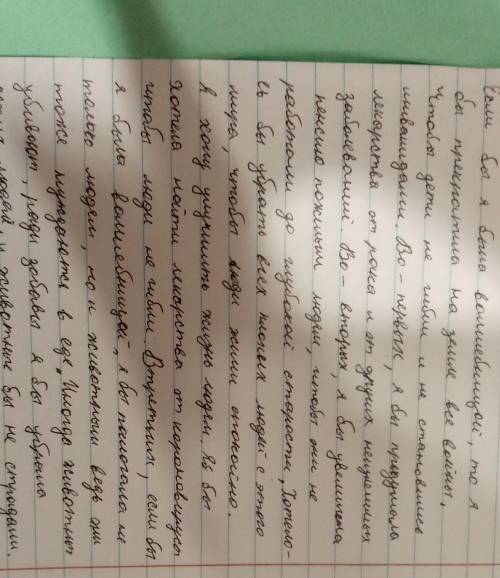 Если бы я была волшебницей, то я
бы прекратила на земле все войны,
чтобы дети не гибли и не становились
инвалидами. Во-первых, я бы придумала
лекарства от рака и от других неизлечимых
заболеваний. Во-вторых, я бы увеличила
пенсию пожилым людям, чтобы они не
работали до глубокой старости. Хотело-
сь бы убрать всех плохих людей с этого
мира, чтобы люди жили спокойно.
Я хочу улучшить жизнь людей. Я бы
хотела найти лекарства от коронавируса
чтобы люди не гибли. В третьих, если бы
я была волшебницей, я бы помогала не
только людям, но и животным ведь они
тоже нуждаются в еде. Иногда животных
убивают, ради забавы я бы убрала
людей и животные бы не страдали.